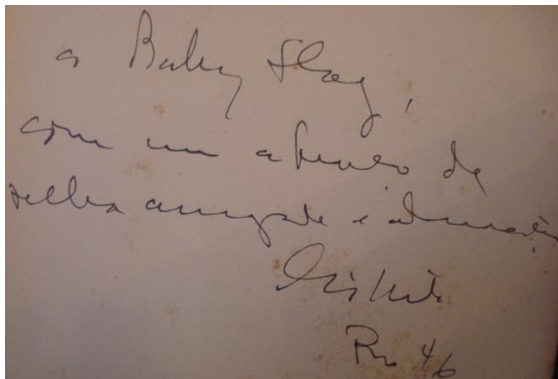 a Baby Flag,
com um abraço de
velha amizade e admiração
Rio 46